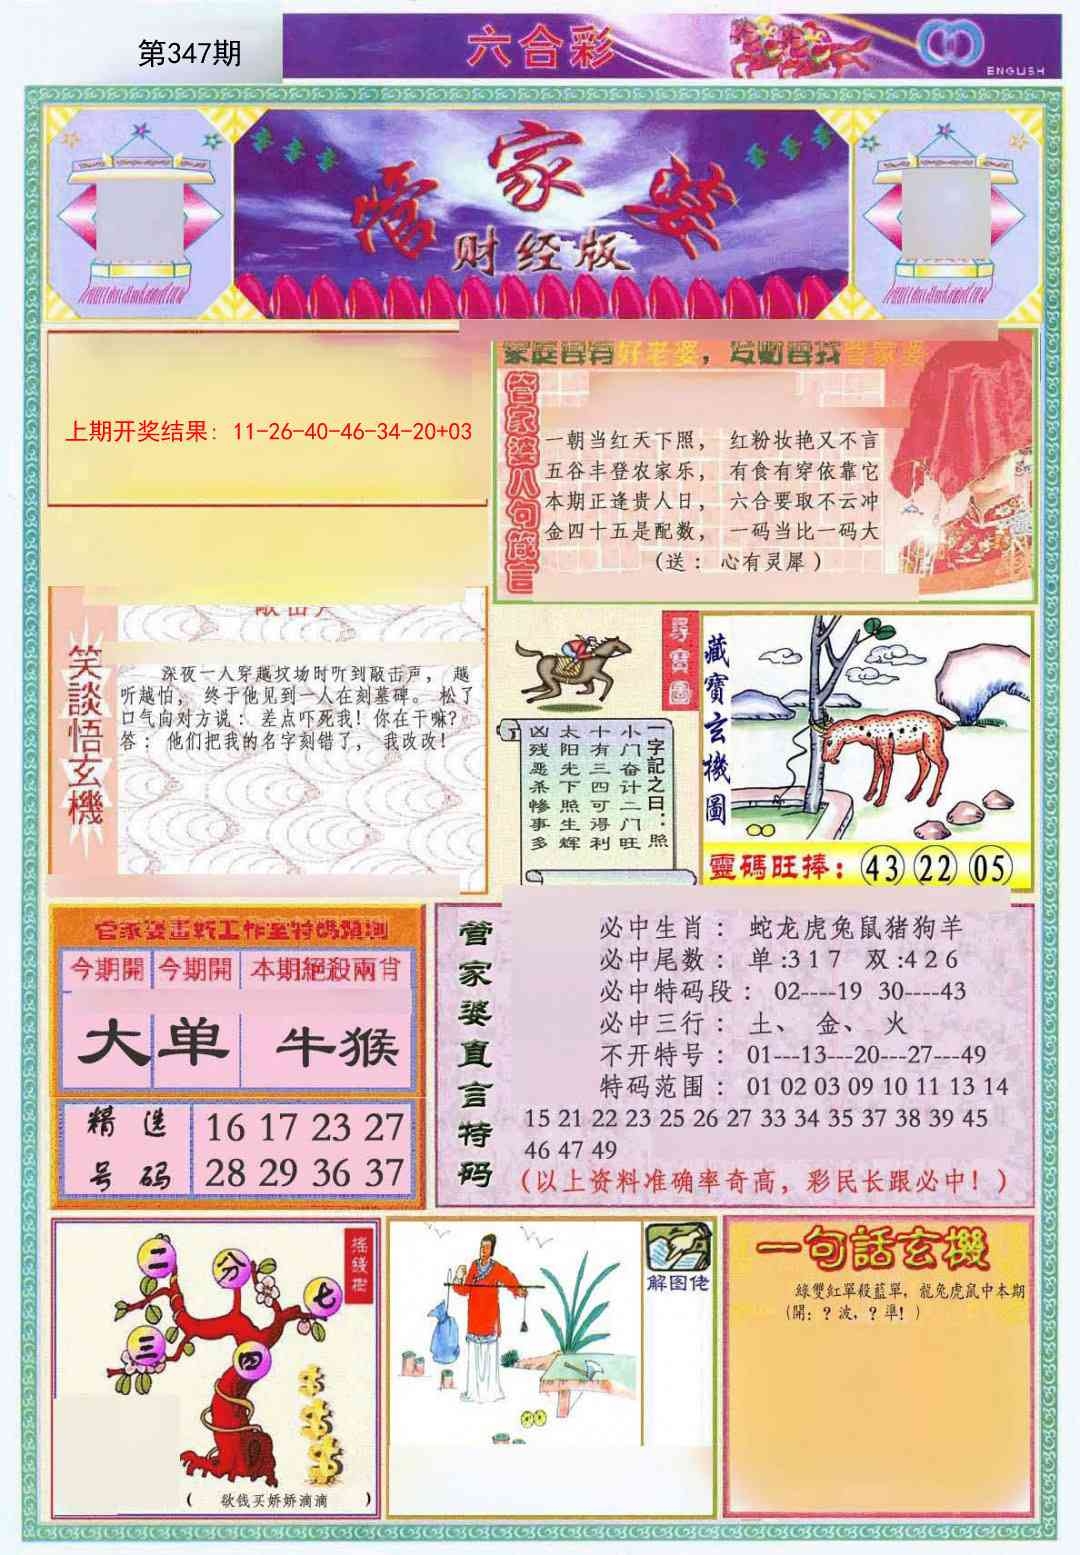 第347期
六合彩
ENGLISH
管家婆
财经版
上期开奖结果: 11-26-40-46-34-20+03
家庭要有好老婆，发财要找管家婆
管家婆八句箴言
一朝当红天下照， 红粉妆艳又不言
五谷丰登农家乐， 有食有穿依靠它
本期正逢贵人日， 六合要取不云冲
金四十五是配数， 一码当比一码大
(送： 心有灵犀 )
笑談悟玄機
敲击声
深夜一人穿越坟场时听到敲击声， 越
听越怕， 终于他见到一人在刻墓碑。 松了
口气向对方说： 差点吓死我！你在干嘛？
答： 他们把我的名字刻错了， 我改改！
尋寶圖
一字記之曰：照
小门奋计二门旺
十有三四可得利
太阳光下照生辉
凶残恶杀惨事多
藏寶玄機圖
靈碼旺捧： 43 22 05
管家婆畫蛇工作室特碼預測
今期開 今期開 本期絕殺兩肖
大 单 牛猴
精选号码
16 17 23 27
28 29 36 37
管家婆直言特码
必中生肖： 蛇龙虎兔鼠猪狗羊
必中尾数： 单:317 双:426
必中特码段： 02----19 30----43
必中三行： 土、 金、 火
不开特号： 01---13---20---27---49
特码范围： 01 02 03 09 10 11 13 14
15 21 22 23 25 26 27 33 34 35 37 38 39 45
46 47 49
(以上资料准确率奇高，彩民长跟必中！)
搖錢樹
二 分 七
三 四
( 欲钱买娇娇滴滴 )
解图佬
一句話玄機
綠雙紅單殺藍單，龍兔虎鼠中本期
(開：？波，？準！)